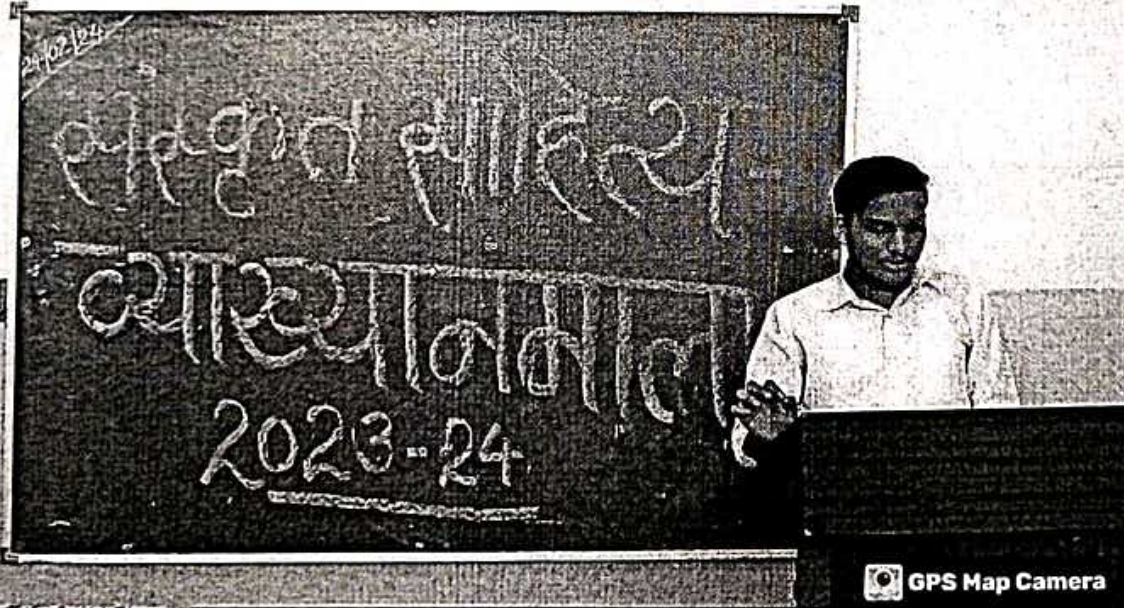 29/02/24
संस्कृत साहित्य
व्याख्यानमाला
2023-24
GPS Map Camera